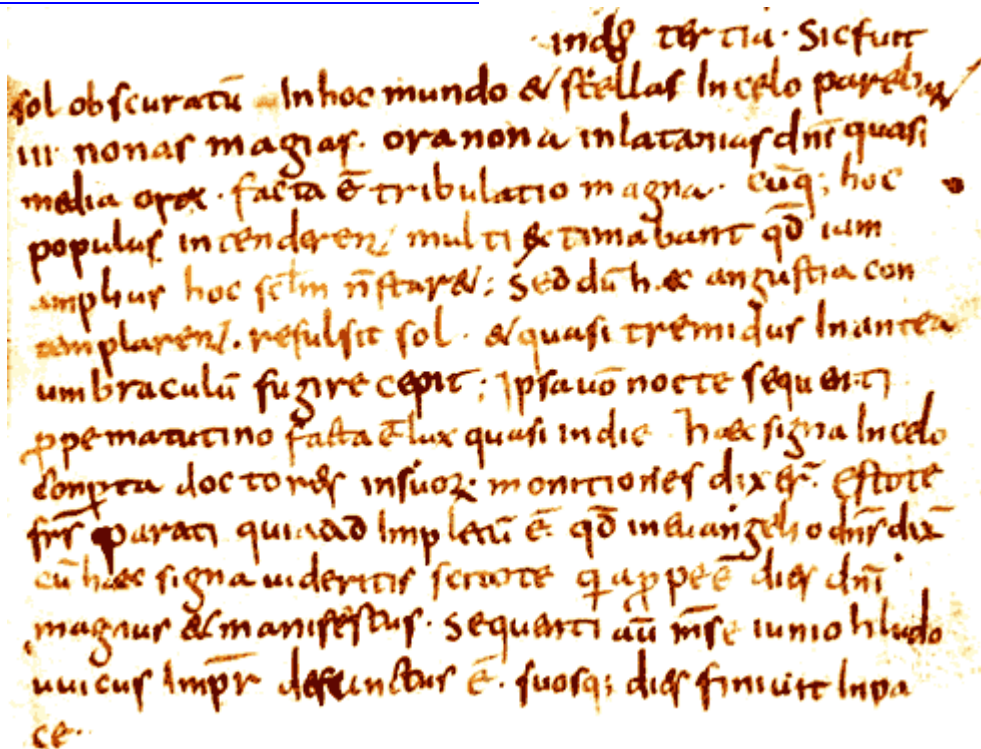 indẽ tertia. Sicfuit
sol obscuratū Inhoc mundo & stellas Incęlo parebaɲ
III nonas magias. oranona inlatanias dnī quasi
media ora. facta ē tribulatio magna. cūq; hoc
populus incenderen multi & timabant qđ iam
amplius hoc sclm̄ n̄ stare&; Sed dū h&c angustia con
templaren. refulsit sol. & quasi tremidus Inantea
umbraculū fugire cępit; Ipsa uō nocte sequenti
ꝓpe matutino facta ē lux quasi indie haec signa Incelo
conꝑta doctores insuoꝝ monitiones dixeř. Estote
frs̄ parati quia ad Impletū ē. qđ ineuangelio dns̄ dix̄
cū haec signa uideritis scitote q̄a ꝓpe ē dies dnī
magnus & manifestus. Sequenti aū mse iunio hludo
uuicus Impr̄ defunctus ē. suosq; dies finiuit Inpa
ce.